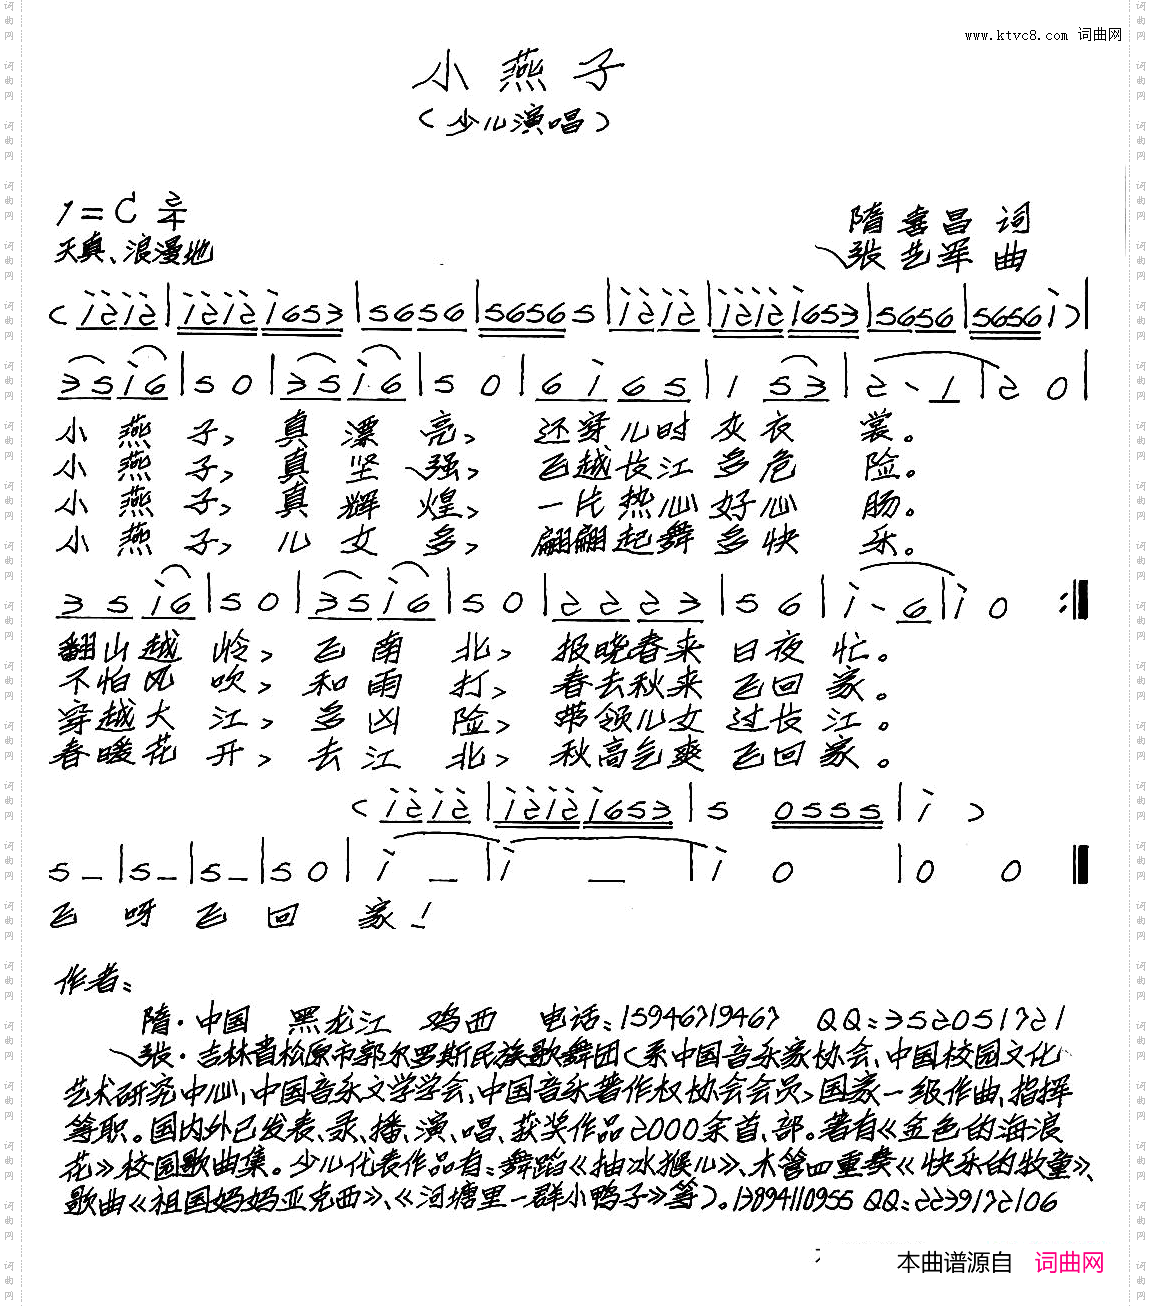 www.ktvc8.com 词曲网
小燕子
(少儿演唱)
1=C 2/4
隋喜昌 词
天真、浪漫地
张艺军 曲
(i2i2|i2i2i653|5656|56565|i2i2|i2i2i653|5656|5656i)|
35i6|50|35i6|50|6i65|153|2·1|20|
小燕子,真漂亮,还穿儿时灰衣裳。
小燕子,真坚强,飞越长江多危险。
小燕子,真辉煌,一片热心好心肠。
小燕子,儿女多,翩翩起舞多快乐。
35i6|50|35i6|50|2223|56|i·6|i0:‖
翻山越岭,飞南北,报晓春来日夜忙。
不怕风吹,和雨打,春去秋来飞回家。
穿越大江,多凶险,带领儿女过长江。
春暖花开,去江北,秋高气爽飞回家。
(i2i2|i2i2i653|5 0555|i)
5–|5–|5–|50|i–|i–|i0|00‖
飞呀飞回家!
作者:
隋·中国 黑龙江 鸡西 电话:15946719467 QQ:352051721
张·吉林省松原市郭尔罗斯民族歌舞团(系中国音乐家协会、中国校园文化
艺术研究中心、中国音乐文学学会、中国音乐著作权协会会员,国家一级作曲、指挥
等职。国内外已发表、录、播、演、唱、获奖作品2000余首、部。著有《金色的海浪
花》校园歌曲集。少儿代表作品有:舞蹈《抽冰猴儿》、木管四重奏《快乐的牧童》、
歌曲《祖国妈妈亚克西》、《河塘里一群小鸭子》等)。13894110955 QQ:2239172106
本曲谱源自 词曲网